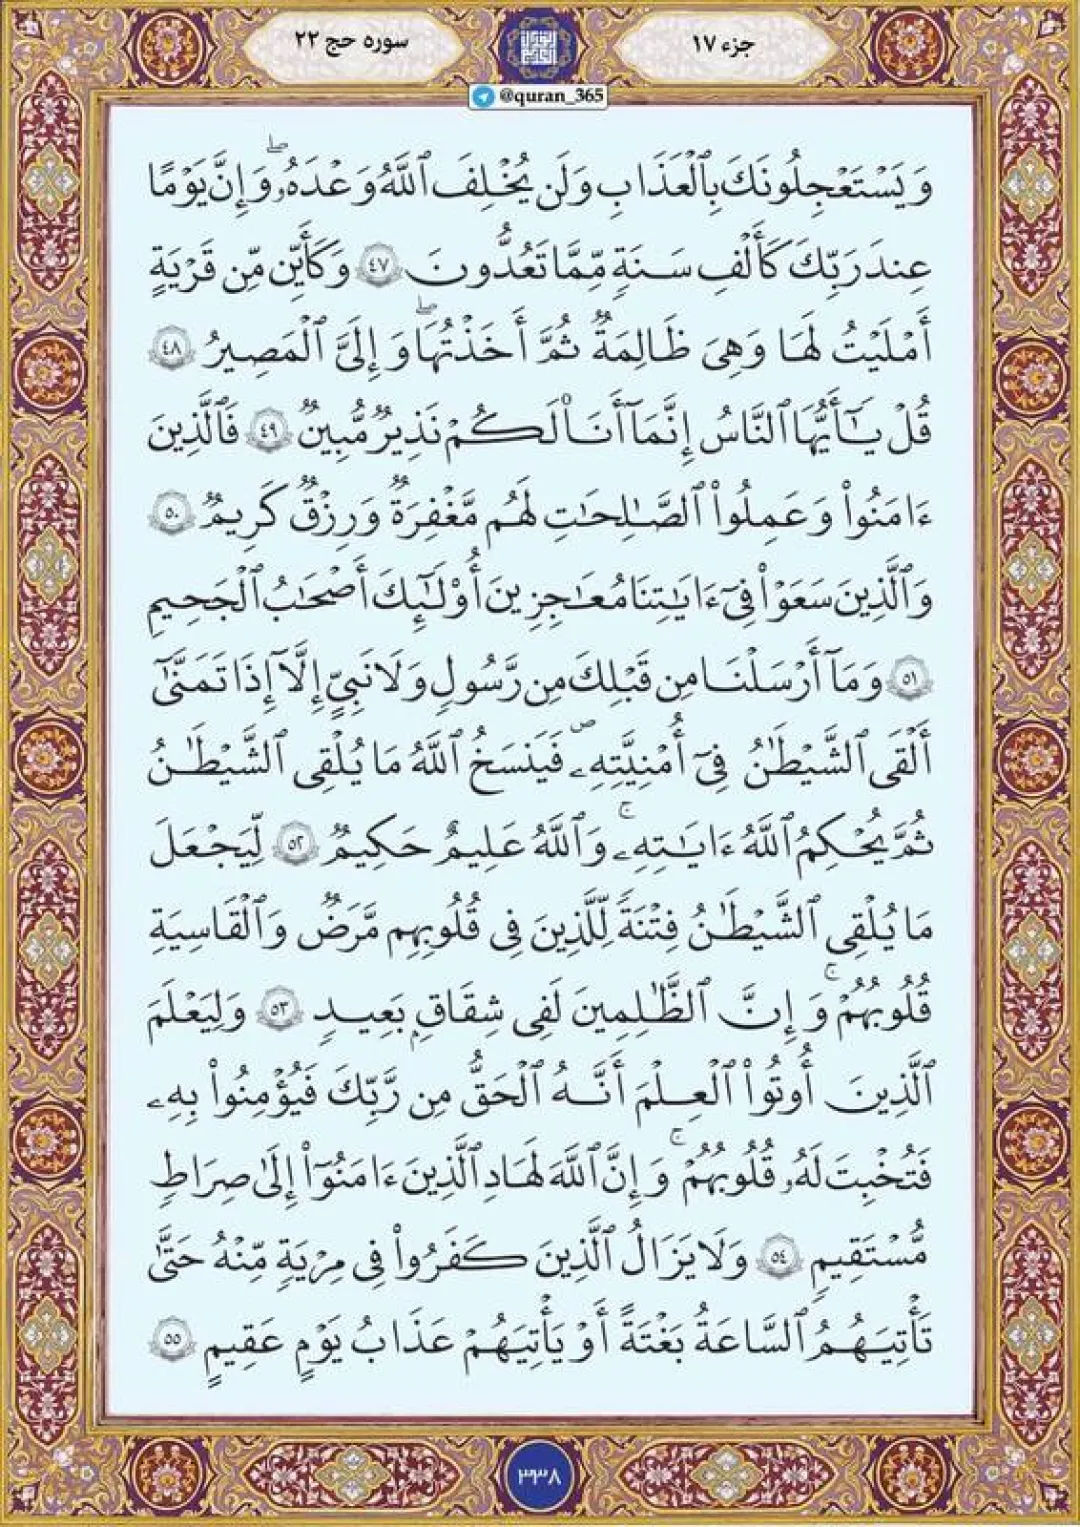 جزء ۱۷
سوره حج ۲۲
@quran_365
وَيَسْتَعْجِلُونَكَ بِٱلْعَذَابِ وَلَن يُخْلِفَ ٱللَّهُ وَعْدَهُۥۖ وَإِنَّ يَوْمًا
عِندَ رَبِّكَ كَأَلْفِ سَنَةٍ مِّمَّا تَعُدُّونَ ٤٧ وَكَأَيِّن مِّن قَرْيَةٍ
أَمْلَيْتُ لَهَا وَهِىَ ظَالِمَةٌ ثُمَّ أَخَذْتُهَاۖ وَإِلَىَّ ٱلْمَصِيرُ ٤٨
قُلْ يَـٰٓأَيُّهَا ٱلنَّاسُ إِنَّمَآ أَنَا۠ لَكُمْ نَذِيرٌ مُّبِينٌ ٤٩ فَٱلَّذِينَ
ءَامَنُوا۟ وَعَمِلُوا۟ ٱلصَّـٰلِحَـٰتِ لَهُم مَّغْفِرَةٌ وَرِزْقٌ كَرِيمٌ ٥٠
وَٱلَّذِينَ سَعَوْا۟ فِىٓ ءَايَـٰتِنَا مُعَـٰجِزِينَ أُو۟لَـٰٓئِكَ أَصْحَـٰبُ ٱلْجَحِيمِ
٥١ وَمَآ أَرْسَلْنَا مِن قَبْلِكَ مِن رَّسُولٍ وَلَا نَبِىٍّ إِلَّآ إِذَا تَمَنَّىٰٓ
أَلْقَى ٱلشَّيْطَـٰنُ فِىٓ أُمْنِيَّتِهِۦۖ فَيَنسَخُ ٱللَّهُ مَا يُلْقِى ٱلشَّيْطَـٰنُ
ثُمَّ يُحْكِمُ ٱللَّهُ ءَايَـٰتِهِۦۚ وَٱللَّهُ عَلِيمٌ حَكِيمٌ ٥٢ لِّيَجْعَلَ
مَا يُلْقِى ٱلشَّيْطَـٰنُ فِتْنَةً لِّلَّذِينَ فِى قُلُوبِهِم مَّرَضٌ وَٱلْقَاسِيَةِ
قُلُوبُهُمْۚ وَإِنَّ ٱلظَّـٰلِمِينَ لَفِى شِقَاقٍۭ بَعِيدٍ ٥٣ وَلِيَعْلَمَ
ٱلَّذِينَ أُوتُوا۟ ٱلْعِلْمَ أَنَّهُ ٱلْحَقُّ مِن رَّبِّكَ فَيُؤْمِنُوا۟ بِهِۦ
فَتُخْبِتَ لَهُۥ قُلُوبُهُمْۚ وَإِنَّ ٱللَّهَ لَهَادِ ٱلَّذِينَ ءَامَنُوٓا۟ إِلَىٰ صِرَاطٍ
مُّسْتَقِيمٍ ٥٤ وَلَا يَزَالُ ٱلَّذِينَ كَفَرُوا۟ فِى مِرْيَةٍ مِّنْهُ حَتَّىٰ
تَأْتِيَهُمُ ٱلسَّاعَةُ بَغْتَةً أَوْ يَأْتِيَهُمْ عَذَابُ يَوْمٍ عَقِيمٍ ٥٥
٣٣٨